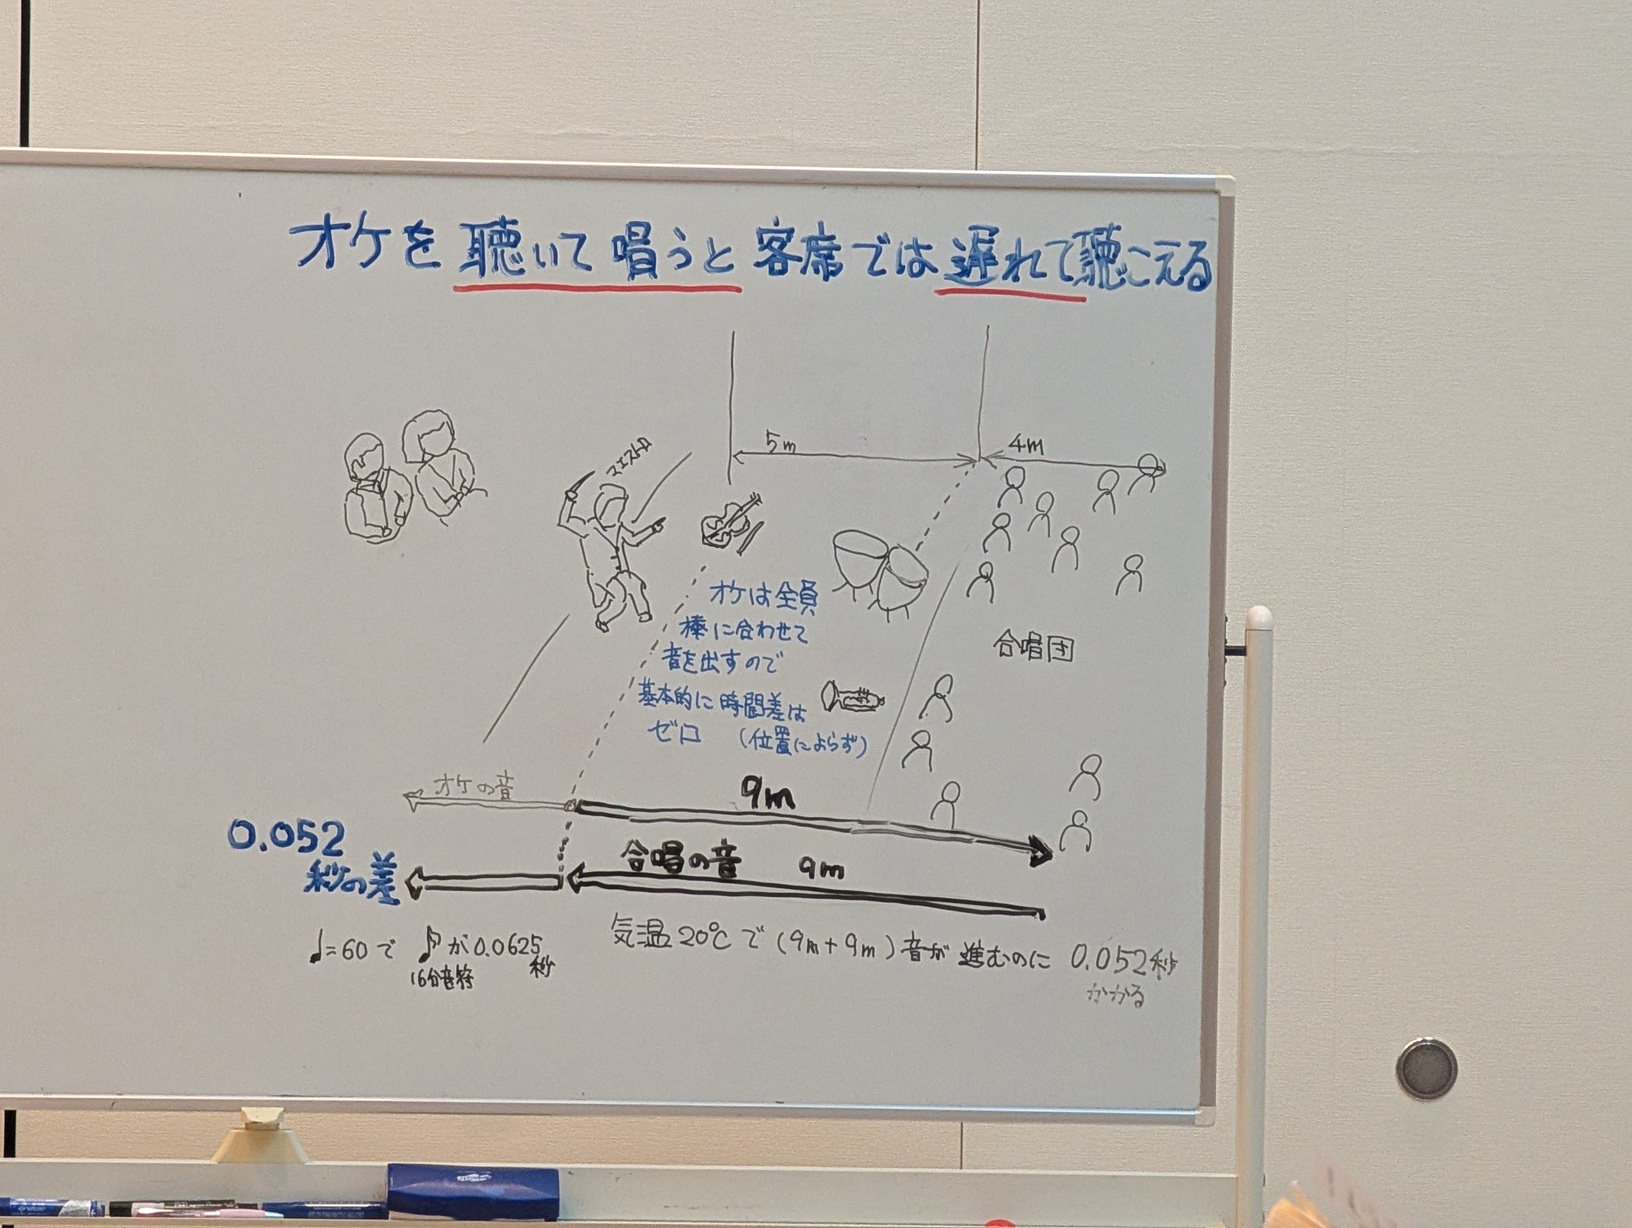 オケを聴いて唱うと客席では遅れて聴こえる
5m
4m
マエストロ
オケは全員
棒に合わせて
音を出すので
基本的に時間差は
ゼロ (位置によらず)
合唱団
オケの音
9m
0.052
秒の差
合唱の音 9m
♩=60で 𝅘𝅥𝅯が0.0625秒
16分音符
気温20℃で(9m+9m)音が進むのに 0.052秒
かかる